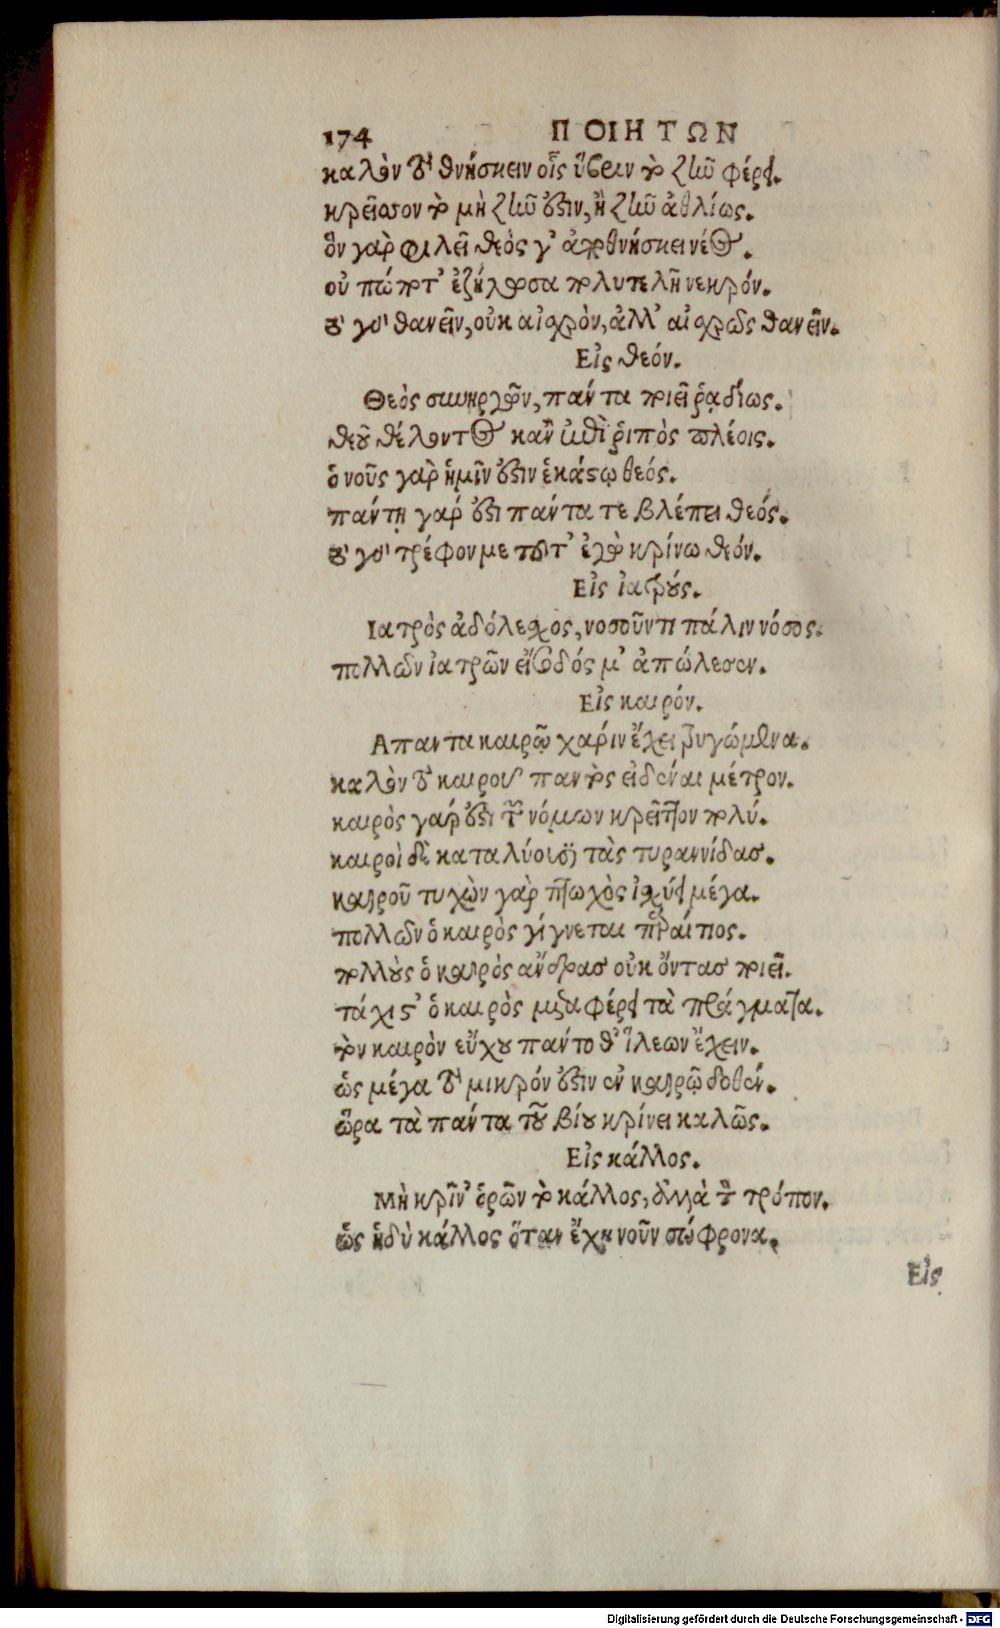 174 ΠΟΙΗΤΩΝ
καλὸν τὸ θνήσκειν οἷς ὕβριν τὸ ζῆν φέρει.
κρεῖσσον τὸ μὴ ζῆν ἐστιν, ἢ ζῆν ἀθλίως.
ὃν γὰρ φιλεῖ θεὸς γ' ἀποθνήσκει νέος.
οὐ πώποτ' ἐζήλωσα πολυτελῆ νεκρόν.
τὸ γὰρ θανεῖν, οὐκ αἰσχρὸν, ἀλλ' αἰσχρῶς θανεῖν.
Εἰς θεόν.
Θεὸς συνεργῶν, πάντα ποιεῖ ῥᾳδίως.
θεοῦ θέλοντος κἂν ἐπὶ ῥιπὸς πλέοις.
ὁ νοῦς γὰρ ἡμῖν ἐστιν ἑκάστῳ θεός.
πάντη γάρ ἐστι πάντα τε βλέπει θεός.
τὸ γὰρ τρέφον με τοῦτ' ἐγὼ κρίνω θεόν.
Εἰς ἰατρούς.
Ιατρὸς ἀδόλεσχος, νοσοῦντι πάλιν νόσος.
πολλῶν ἰατρῶν εἴσοδός μ' ἀπώλεσεν.
Εἰς καιρόν.
Απαντα καιρῷ χάριν ἔχει τρυγώμενα.
καλὸν τὸ καιροῦ παντὸς εἰδέναι μέτρον.
καιρὸς γάρ ἐστι τῶν νόμων κρεῖττον πολύ.
καιροὶ δὲ καταλύουσι τὰς τυραννίδας.
καιροῦ τυχὼν γὰρ πτωχὸς ἰσχύει μέγα.
πολλῶν ὁ καιρὸς γίγνεται παραίτιος.
πολλοὺς ὁ καιρὸς ἄνδρας οὐκ ὄντας ποιεῖ.
τάχιστ' ὁ καιρὸς μεταφέρει τὰ πράγματα.
τὸν καιρὸν εὔχου πάντοθ' ἵλεων ἔχειν.
ὡς μέγα τὸ μικρόν ἐστιν ἐν καιρῷ δοθέν.
ὥρα τὰ πάντα τοῦ βίου κρίνει καλῶς.
Εἰς κάλλος.
Μὴ κρῖν' ὁρῶν τὸ κάλλος, ἀλλὰ τὸν τρόπον.
ὡς ἡδὺ κάλλος ὅταν ἔχῃ νοῦν σώφρονα.
Εἰς
Digitalisierung gefördert durch die Deutsche Forschungsgemeinschaft - DFG